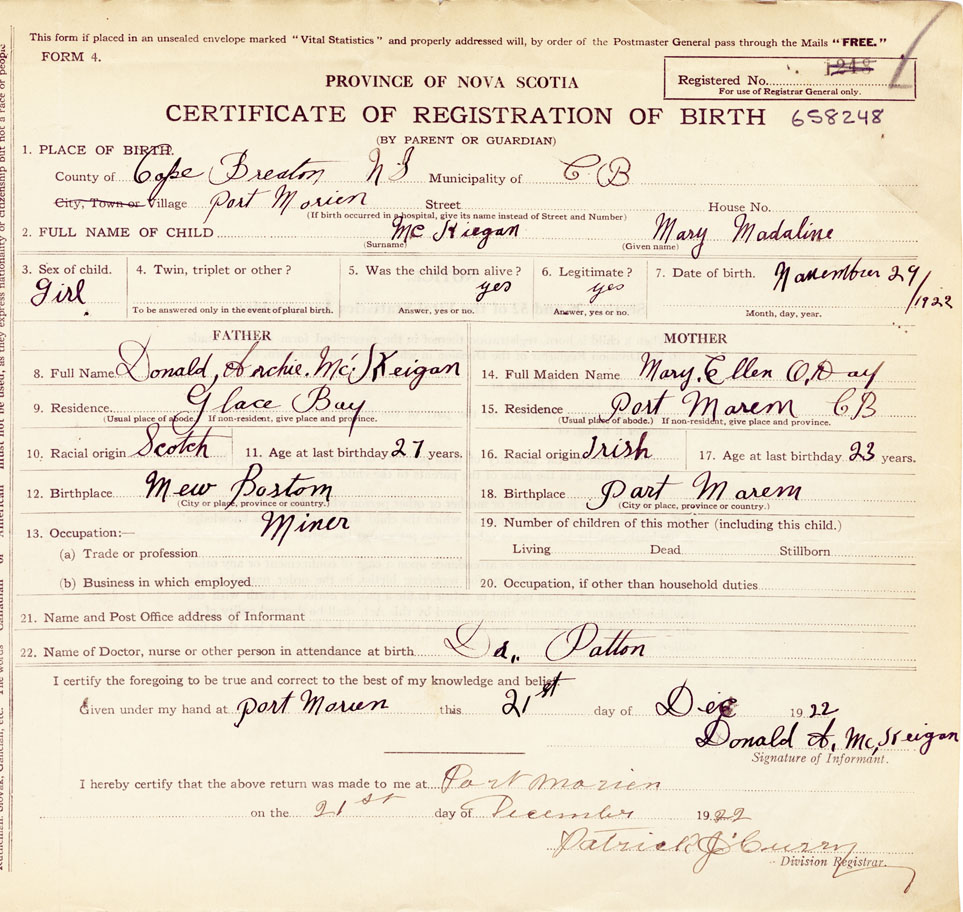 This form if placed in an unsealed envelope marked "Vital Statistics" and properly addressed will, by order of the Postmaster General pass through the Mails "FREE."
FORM 4.
PROVINCE OF NOVA SCOTIA
Registered No. 1248
For use of Registrar General only.
CERTIFICATE OF REGISTRATION OF BIRTH 658248
(BY PARENT OR GUARDIAN)
1. PLACE OF BIRTH.
County of Cape Breton NS Municipality of CB
City, Town or Village Port Morien Street House No.
(If birth occurred in a hospital, give its name instead of Street and Number)
2. FULL NAME OF CHILD Mc Kiegan Mary Madaline
(Surname) (Given name)
3. Sex of child. 4. Twin, triplet or other? 5. Was the child born alive? 6. Legitimate? 7. Date of birth. November 29/1922
Girl yes yes
To be answered only in the event of plural birth. Answer, yes or no. Answer, yes or no. Month, day, year.
FATHER MOTHER
8. Full Name Donald, Archie. Mc Keigan 14. Full Maiden Name Mary. Ellen O,Day
9. Residence Glace Bay 15. Residence Port Marem CB
(Usual place of abode.) If non-resident, give place and province. (Usual place of abode.) If non-resident, give place and province.
10. Racial origin Scotch 11. Age at last birthday 27 years. 16. Racial origin Irish 17. Age at last birthday 23 years.
12. Birthplace Mew Bostom 18. Birthplace Part Marem
(City or place, province or country.) (City or place, province or country.)
13. Occupation:— Miner 19. Number of children of this mother (including this child.)
(a) Trade or profession Living Dead Stillborn
(b) Business in which employed 20. Occupation, if other than household duties
21. Name and Post Office address of Informant
22. Name of Doctor, nurse or other person in attendance at birth Dr. Patton
I certify the foregoing to be true and correct to the best of my knowledge and belief
Given under my hand at Port Morien this 21st day of Dec 1922
Donald A. Mc Keigan
Signature of Informant.
I hereby certify that the above return was made to me at Port Morien
on the 21st day of December 1922
Patrick J Curry
Division Registrar.